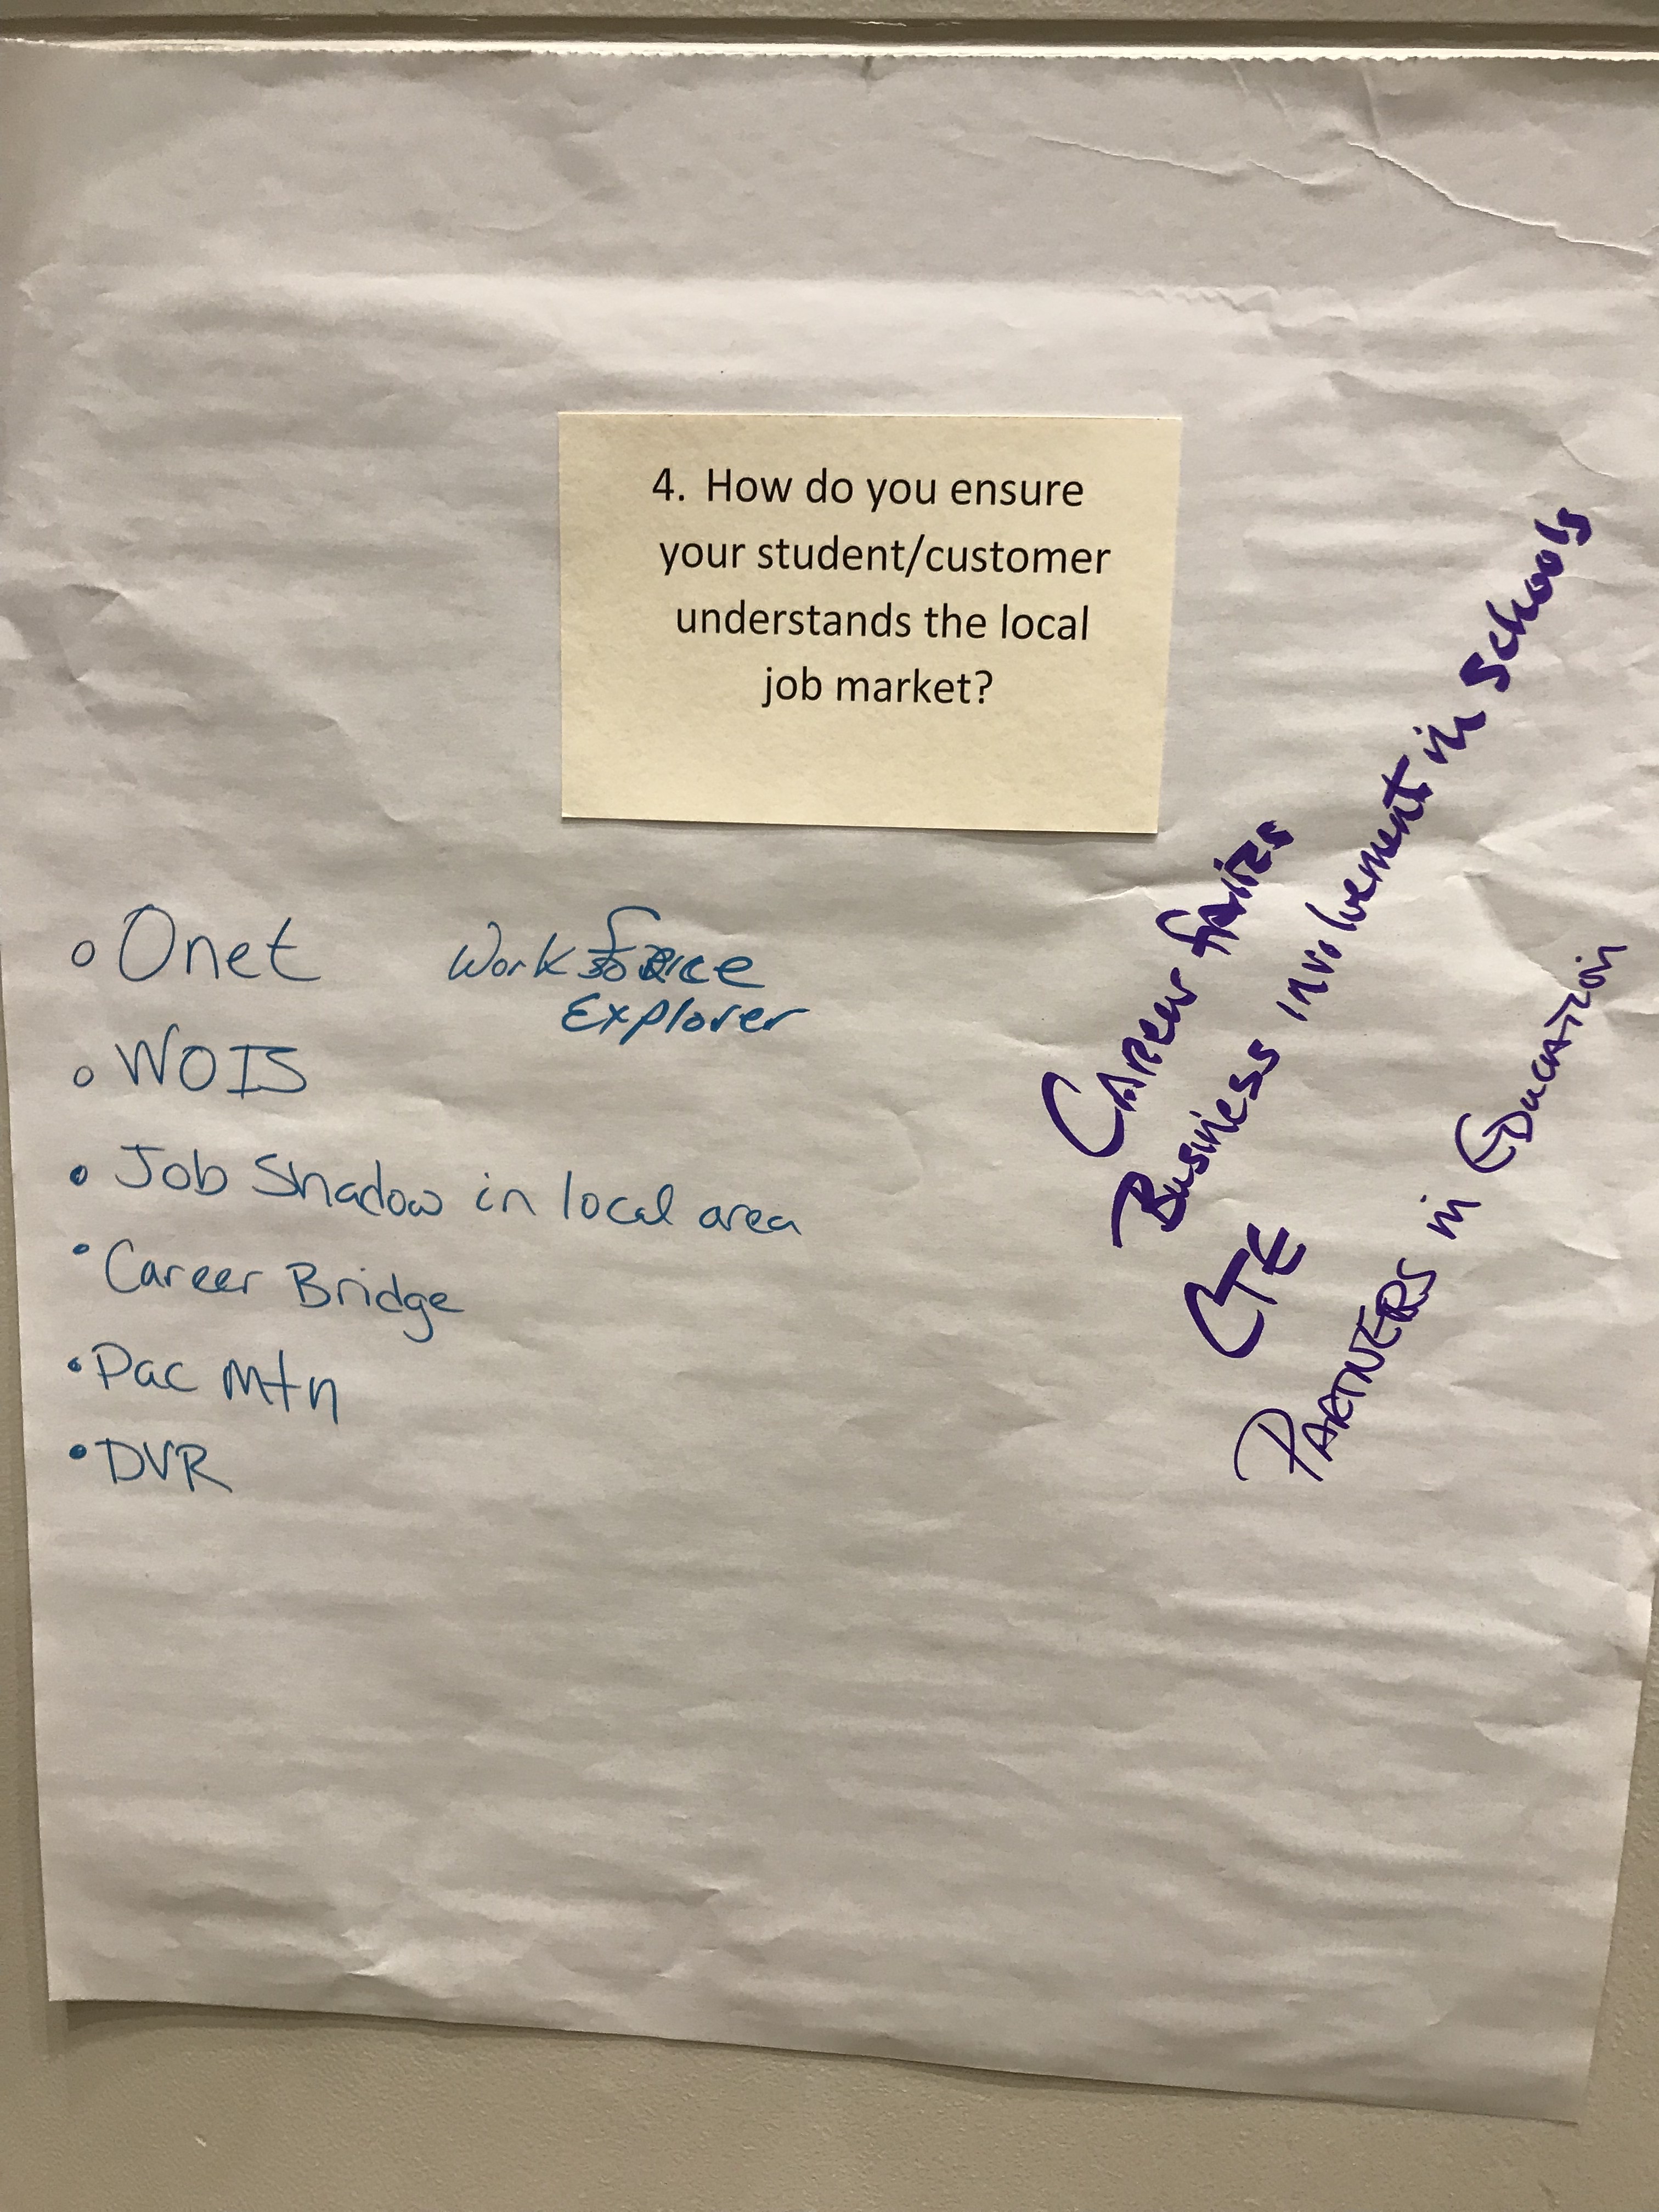 4. How do you ensure
your student/customer
understands the local
job market?
Onet
Workforce
Explorer
WOIS
Job Shadow in local area
Career Bridge
Pac Mtn
DVR
Career faires
Business involvement in Schools
CTE
PARTNERS in EDUCATION